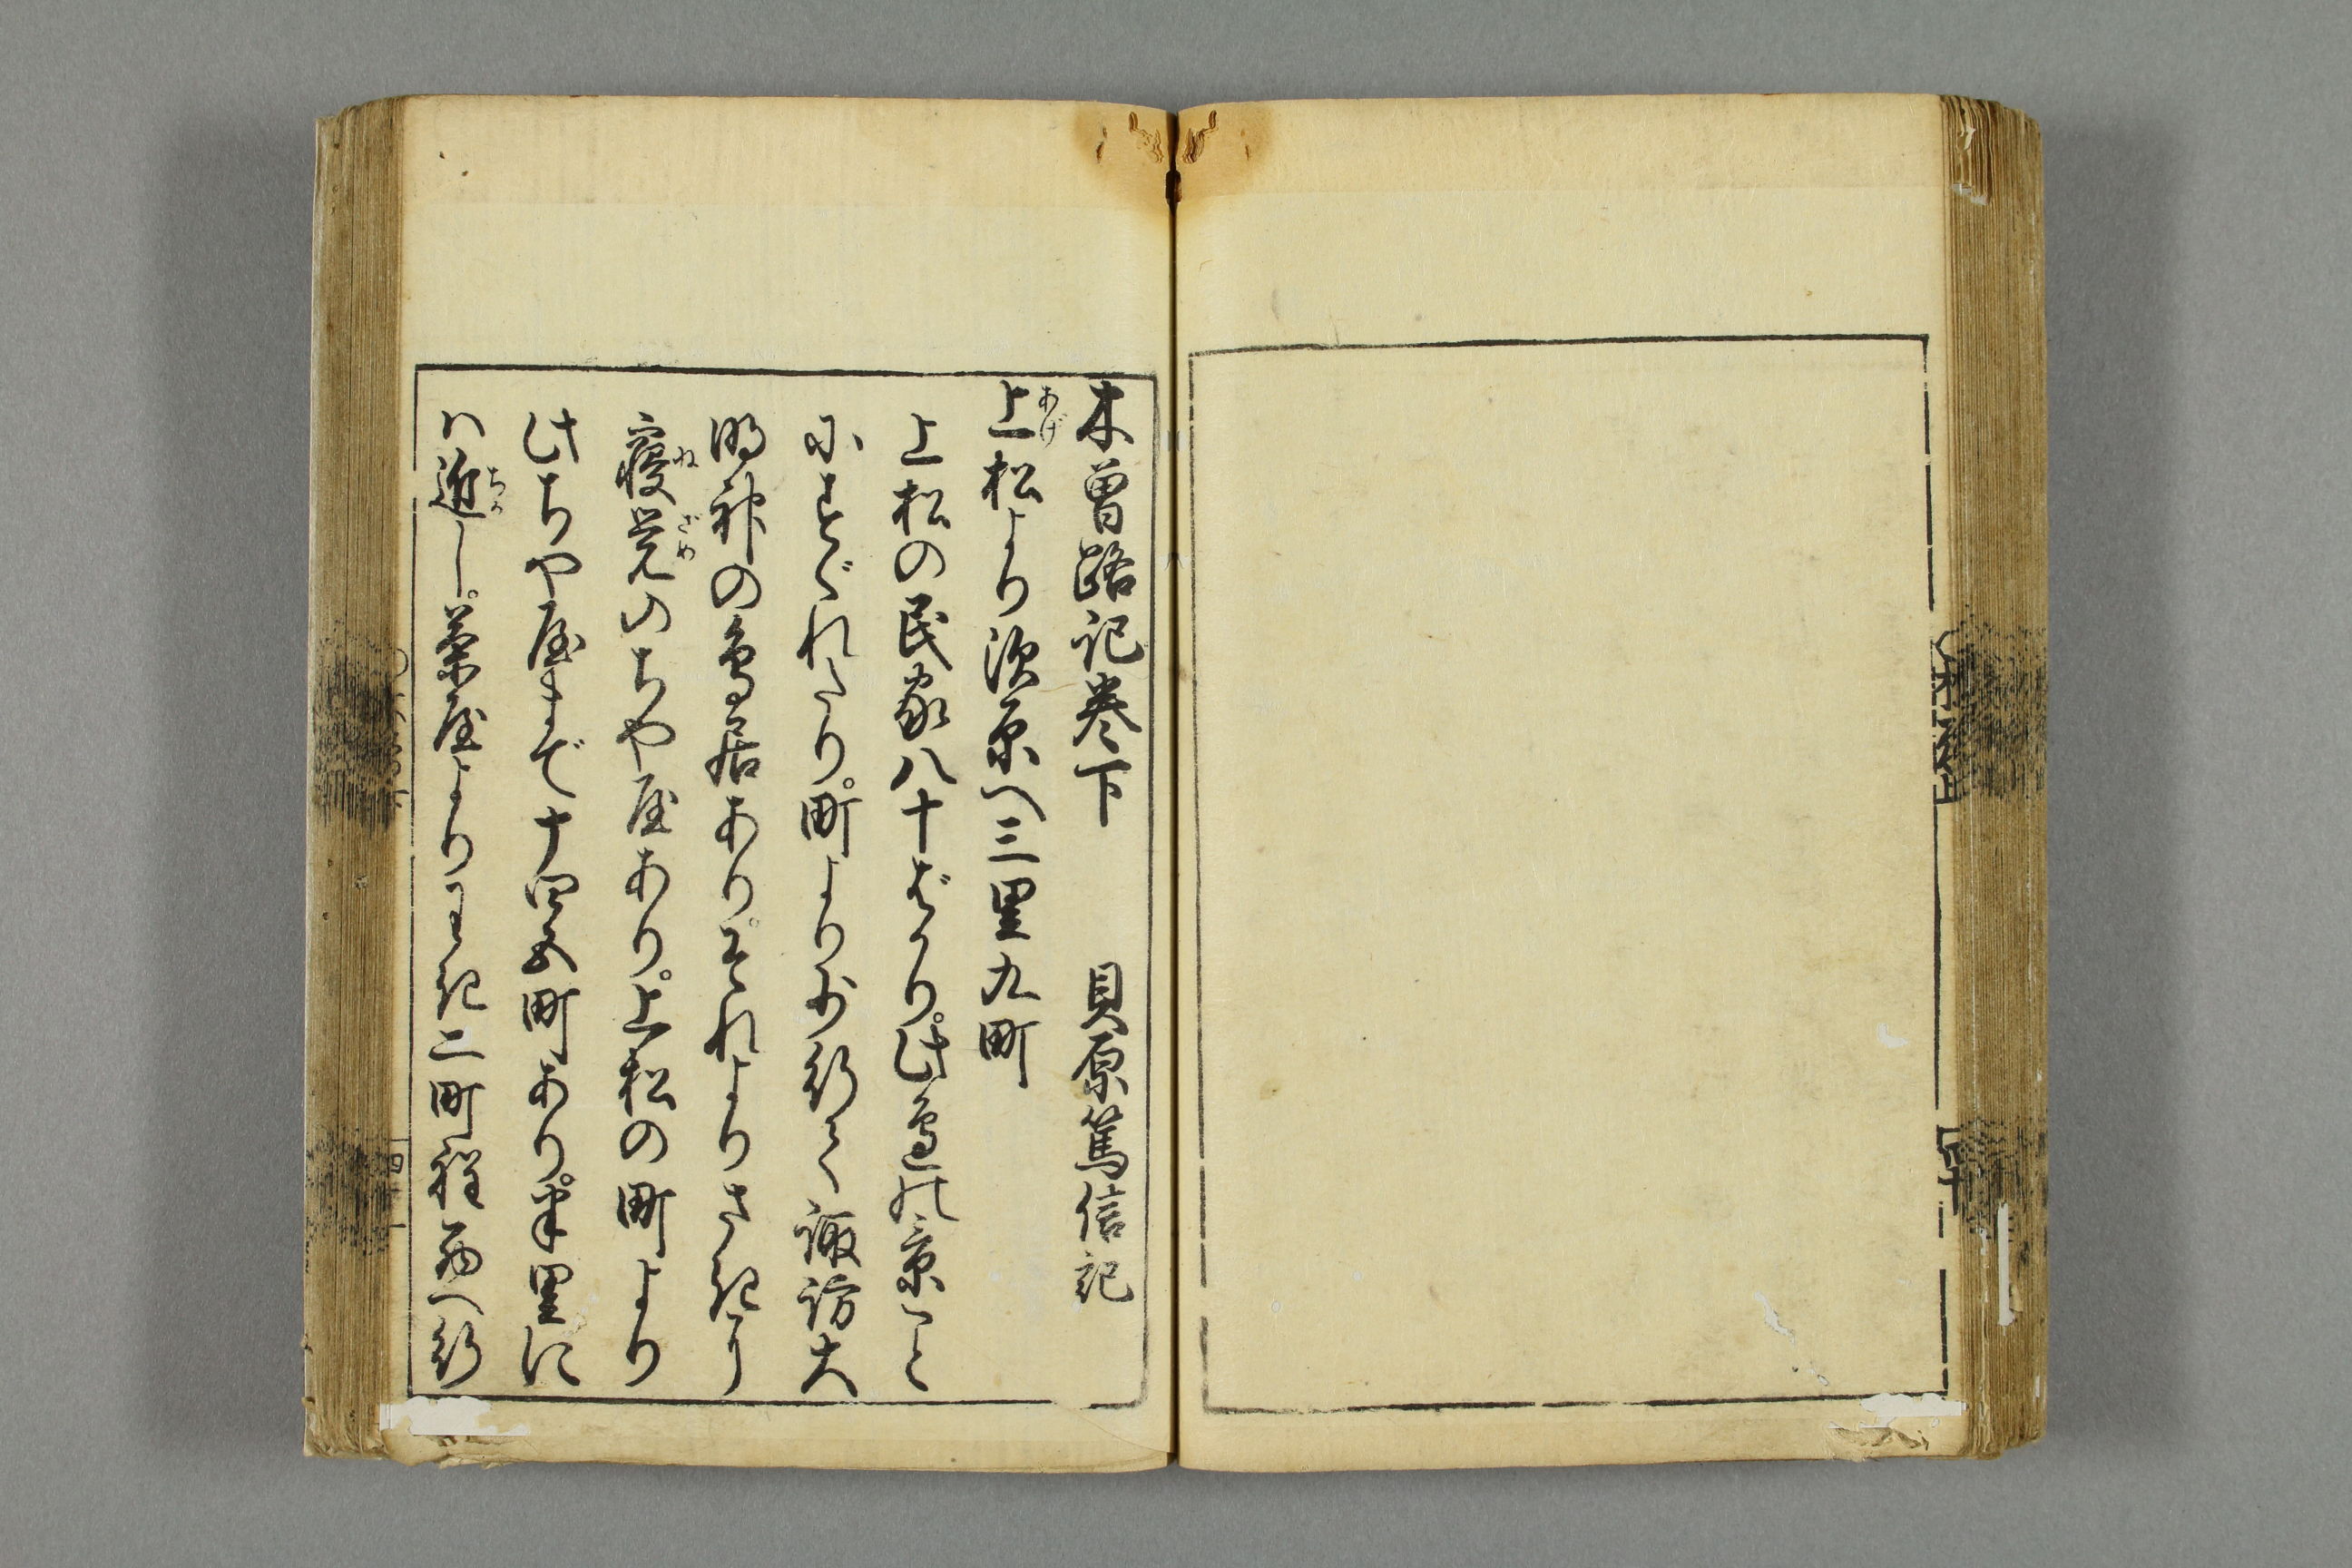 木曽路記巻下　貝原篤信記
上松より須原へ三里九町
上松の民家八十ばかり。此邊の景こと
にすぐれたり。町より少行て諏訪大
明神の鳥居あり。それよりさきに
寝覚のちや屋あり。上松の町より
此ちや屋まで十四五町あり。半里に
ハ近し。茶屋よりわき二町程西へ行